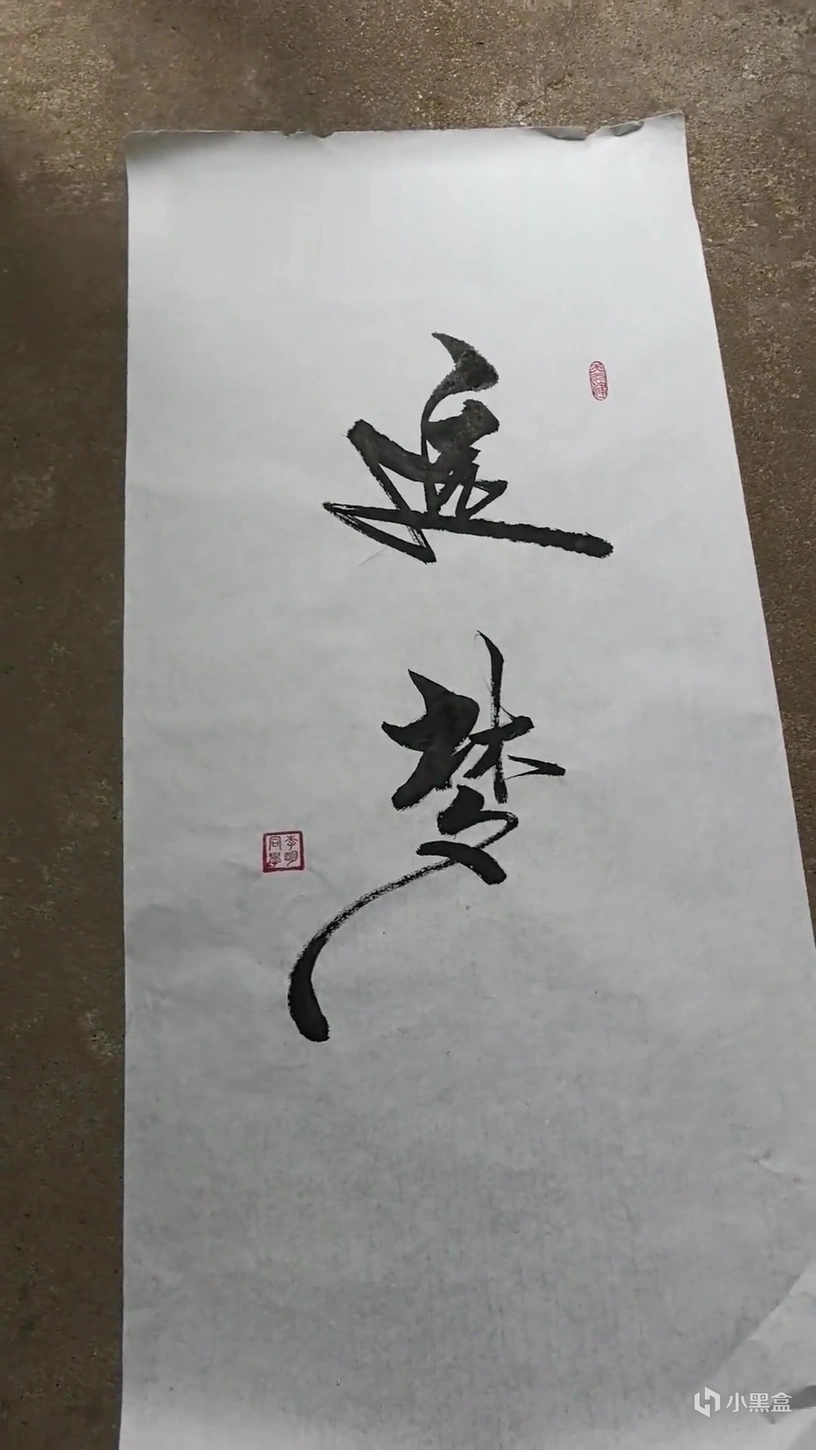 追梦
李明
同学
小黑盒